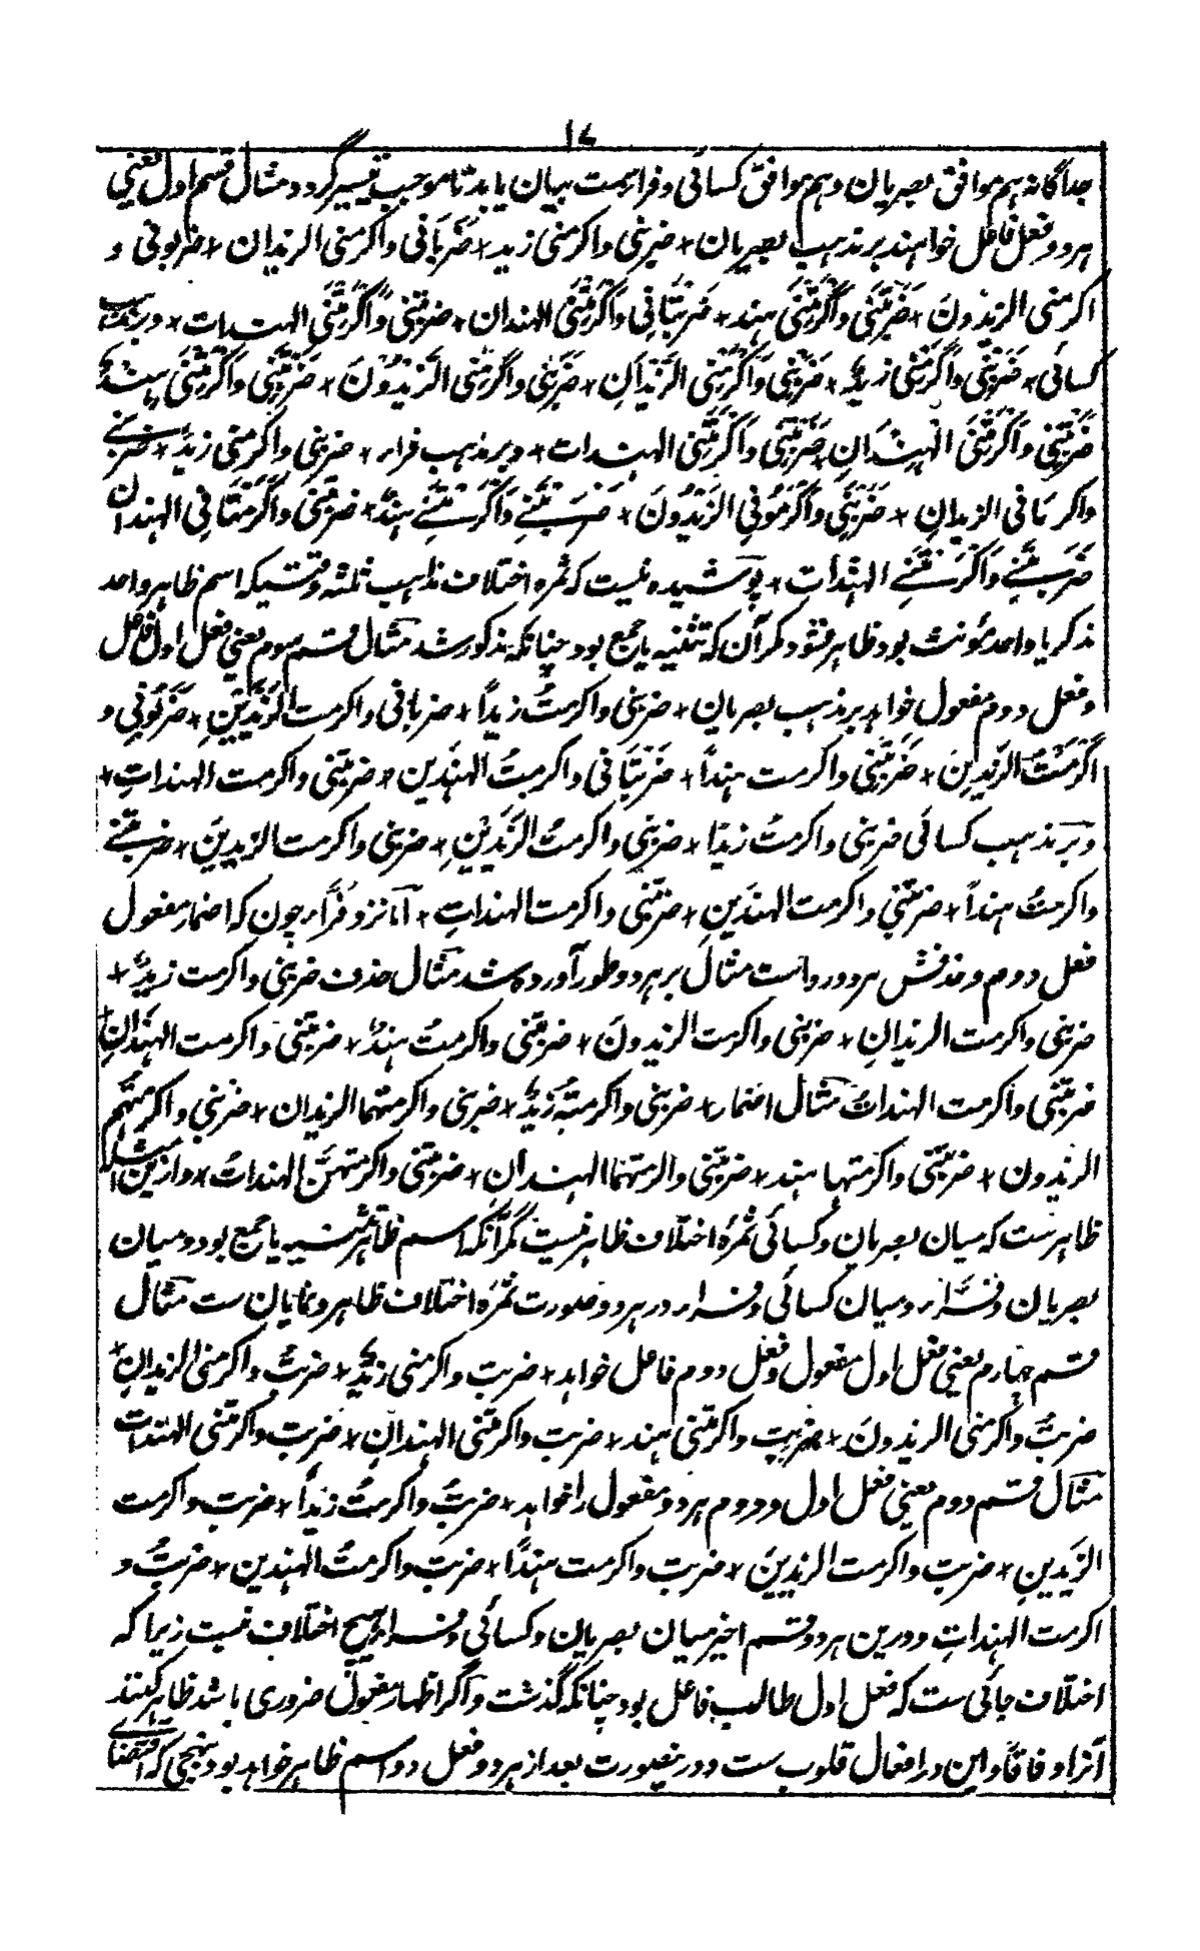 ١٧
جداگانه هم موافق بصریان و هم موافق کسائی و فراء سمت بیان یابد تا موجب تیسیر گردد مثال قسم اول یعنی
هر دو فعل فاعل خواهند بر مذهب بصریان * ضربنی واکرمنی زید * ضَرَبَانی واکرمنی الزیدان * ضربونی و
اکرمنی الزیدونَ * ضَرَبَتْنی وَاَکْرَمَتْنی هند * ضَرَبَتَانِی وَاَکْرَمَتْنی الهندان * ضربننی وَاَکْرَمَتْنی الهندات * و بر مذهب
کسائی * ضَرَبَنِی وَاَکْرَمَنِی زیدٌ * ضَرَبَنِی وَاَکْرَمَنِی الزَیْدَانِ * ضَرَبَنِی واکرَمَنی الزَیْدُوْنَ * ضَرَبَتْنِی وَاَکْرَمَتْنِی هِنْدٌ
ضَرَبَتْنِی وَاَکْرَمَتْنِی الْهِنْدَانِ ضَرَبَتْنِی وَاَکْرَمَتْنِی الهندات * و بر مذهب فراء * ضربنی واکرمنی زیدٌ * ضربنے
واکرمَانی الزیدانِ * ضَرَبَنِی وَاَکْرَمُوْنِی الزَیْدُونَ * ضَرَبَتْنِے وَاَکْرَمَتْنِے هِنْدٌ * ضربتنی وَاَکْرَمَتَانِی الهندان
ضَرَبَتْنِے وَاَکْرَمْنَنِے الهنْدَاتِ * پوشیده نیست که ثمره اختلاف مذاهب ثلثه وقتیکه اسم ظاهر واحد
مذکر یا واحد مؤنث بود ظاهر نشود مگر آن که تثنیه یا جمع بود چنانکه مذکور شد مثال قسم سوم یعنی فعل اول فاعل
و فعل دوم مفعول خواهد بر مذهب بصریان * ضربنی واکرمتُ زیداً * ضربانی واکرمت الزَیْدَیْنِ * ضَرَبُونِی و
اَکْرَمْتُ الزَیدِینَ * ضَرَبَتْنِی واکرمت هنداً * ضَرَبَتَانی واکرمتُ الهِنْدَین * ضربننی واکرمت الهنداتِ *
و بر مذهب کسائی ضربنی واکرمتُ زیدًا * ضربنی واکرمتُ الزَیْدَیْنِ * ضربنی واکرمت الزیدِینَ * ضربتنے
واکرمتُ هنداً * ضربتنی واکرمت الهندَینِ * ضربتنی واکرمت الهنداتِ * اما نزد فرّاء چون که اضمار مفعول
فعل دوم و حذفش هر دو رواست مثال بر هر دو طور آورده شد مثال حذف ضربنی واکرمت زیدٌ *
ضربنی واکرمت الزیدانِ * ضربنی واکرمت الزیدونَ * ضربتنی واکرمتُ هندٌ * ضربتنی واکرمت الهِنْدَانِ *
ضربتنی واکرمت الهنداتُ مثال اضمار * ضربنی واکرمتهُ زَیْدٌ * ضربنی واکرمتهما الزیدان * ضربنی واکرمتُهُم
الزیدون * ضربتنی واکرمتها هند * ضربتنی واکرمتهما الهندان * ضربتنی واکرمتهنَّ الهنداتُ * و ازین امثله
ظاهرست که میان بصریان و کسائی ثمرهٔ اختلاف ظاهر نیست مگر آنکه اسم ظاهر تثنیه یا جمع بود و میان
بصریان و فراء و میان کسائی و فراء در هر دو صورت ثمرهٔ اختلاف ظاهر و نمایان ست مثال
قسم چهارم یعنی فعل اول مفعول و فعل دوم فاعل خواهد * ضربت واکرمنی زیدٌ * ضربتُ واکرمنی الزیدانِ *
ضربتُ واکرمنی الزیدونَ * ضربت واکرمتنی هند * ضربت واکرمتنی الهندانِ * ضربت واکرمتنی الهندات
مثال قسم دوم یعنی فعل اول و دوم هر دو مفعول را خواهد * ضربتُ واکرمتُ زیداً * ضربت واکرمت
الزَیدَینِ * ضربت واکرمت الزیدِیْنَ * ضربت واکرمت هندًا * ضربت واکرمتُ الهندین * ضربتُ و
اکرمت الهنداتِ و درین هر دو قسم اخیر میان بصریان و کسائی و فراء هیچ اختلاف نیست زیرا که
اختلاف جائی ست که فعل اول طالب فاعل بود چنانکه گذشت و اگر اظهار مفعول ضروری باشد ظاهر کنند
آنرا وفاقاً و این در افعال قلوب ست و درینصورت بعد از هر دو فعل دو اسم ظاهر خواهد بود بنهجی که اقتضای